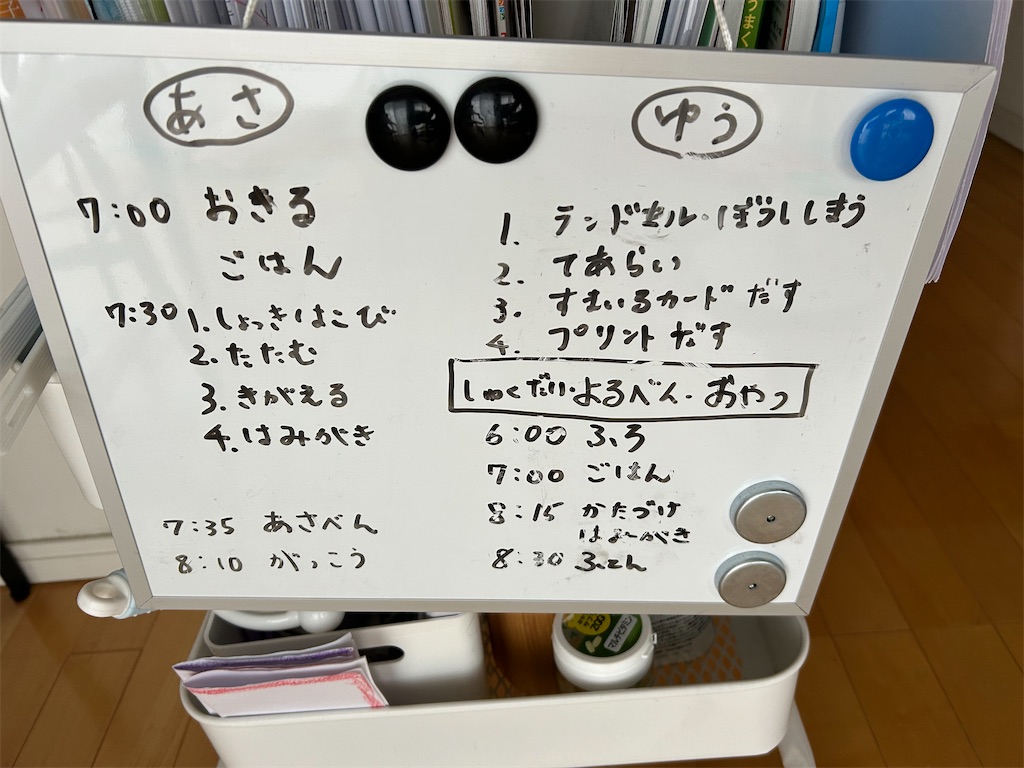 うまく
あさ
7:00 おきる
ごはん
7:30 1.しょっきはこび
2.たたむ
3.きがえる
4.はみがき
7:35 あさべん
8:10 がっこう
ゆう
1. ランドセル・ぼうししまう
2. てあらい
3. すまいるカード だす
4. プリント だす
しゅくだい・よるべん・おやつ
6:00 ふろ
7:00 ごはん
8:15 かたづけ
はみがき
8:30 ふとん
200
マルチビタミン